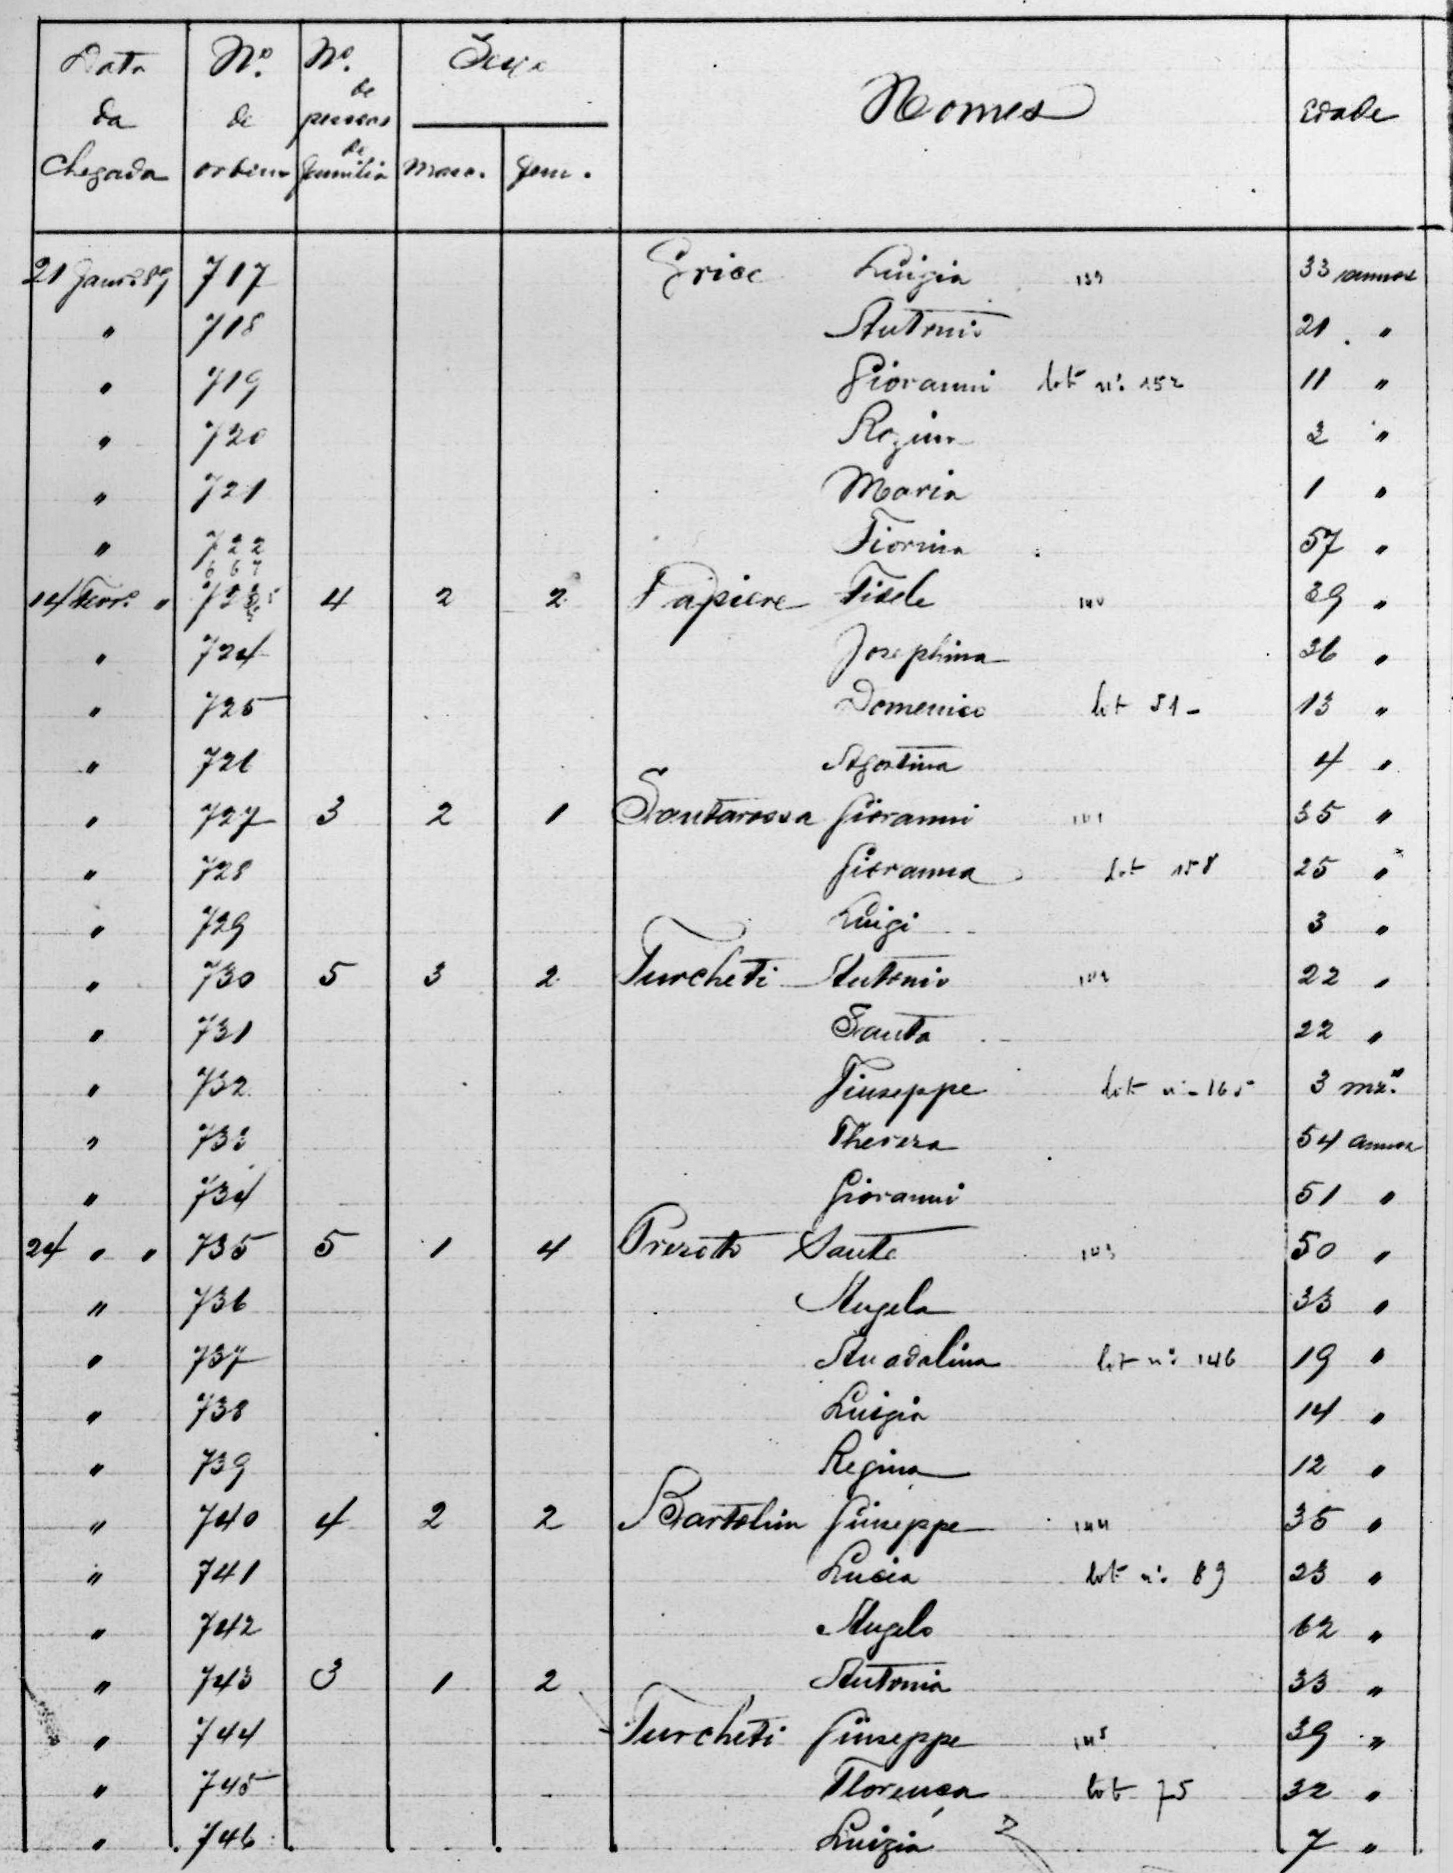 Data da chegada Nº. de ordem Nº. de pessoas de familia Sexo Masc. Fem. Nomes Edade
21 Janr.89 717 Luigia 139 33 annos
" 718 Antonio 21 "
" 719 Giovanni lot nº 152 11 "
" 720 Regina "
" 721 Maria 1 "
" 722 Fiorina 57 "
667
14 Fevr. " 723 4 2 2 Papiere Fidele 140 39 "
" 724 Josephina 26 "
" 725 Domenico lot 51 - 13 "
" 726 Agostina 4 "
" 727 3 2 1 Santarossa Giovanni 141 35 "
" 728 Giovanna lot 158 25 "
" 729 Luigi 3 "
" 730 5 3 2 Turcheti Antonio 142 22 "
" 731 Santa 22 "
" 732 Giuseppe lot nº 165 3 mz.
" 733 Thereza 54 annos
" 734 Giovanni 51 "
24 " " 735 5 1 4 Sante 143 50 "
" 736 Angela 33 "
" 737 Anadalina lot nº 146 19 "
" 738 Luigia 14 "
" 739 Regina 12 "
" 740 4 2 2 Bartolin Giuseppe 144 35 "
" 741 Lucia lot nº 89 23 "
" 742 Angelo 62 "
" 743 3 1 2 Antonia 33 "
" 744 Turcheti Giuseppe 145 39 "
" 745 Florença lot 75 32 "
" 746 Luizia 7 "